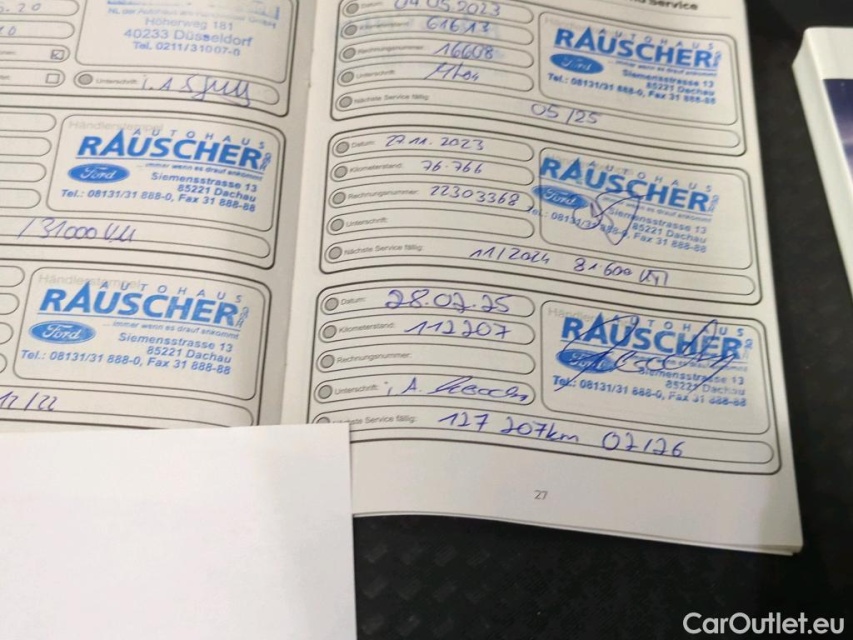 Höherweg 181
40233 Düsseldorf
Tel. 0211/31007-0
Unterschrift:
AUTOHAUS
RAUSCHER
...immer wenn es drauf ankommt
Ford
Siemensstrasse 13
85221 Dachau
Tel.: 08131/31 888-0, Fax 31 888-88
131000 km
AUTOHAUS
RAUSCHER
...immer wenn es drauf ankommt
Ford
Siemensstrasse 13
85221 Dachau
Tel.: 08131/31 888-0, Fax 31 888-88
12/22
Service
Datum: 04.05.2023
61613
Rechnungsnummer: 16608
Unterschrift:
Nächste Service fällig: 05/25
AUTOHAUS
RAUSCHER
Ford
Siemensstrasse 13
85221 Dachau
Tel.: 08131/31 888-0, Fax 31 888-88
Datum: 27.11.2023
Kilometerstand: 76.766
Rechnungsnummer: 22303368
Unterschrift:
Nächste Service fällig: 11/2024 81600 km
AUTOHAUS
RAUSCHER
...immer wenn es drauf ankommt
Ford
Siemensstrasse 13
85221 Dachau
Tel.: 08131/31 888-0, Fax 31 888-88
Datum: 28.02.25
Kilometerstand: 112207
Rechnungsnummer:
Unterschrift: i.A.
Nächste Service fällig: 127 207km 02/26
AUTOHAUS
RAUSCHER
Ford
Siemensstrasse 13
85221 Dachau
Tel.: 08131/31 888-0, Fax 31 888-88
27
CarOutlet.eu